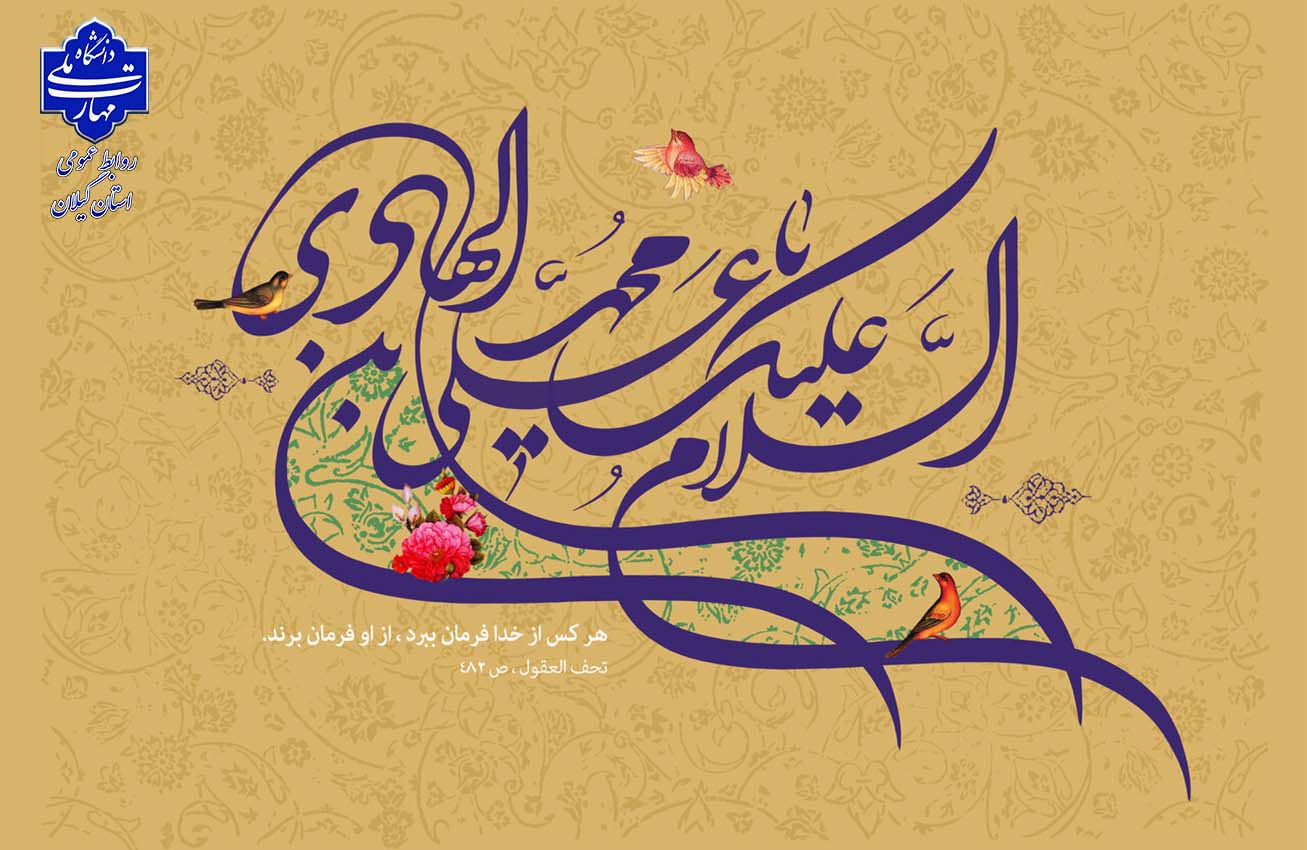 دانشگاه
ملی
مهارت
روابط عمومی
استان گیلان
السلام علیک یا علی بن محمد الهادی
هر کس از خدا فرمان ببرد ، از او فرمان برند.
تحف العقول ، ص ۴۸۲